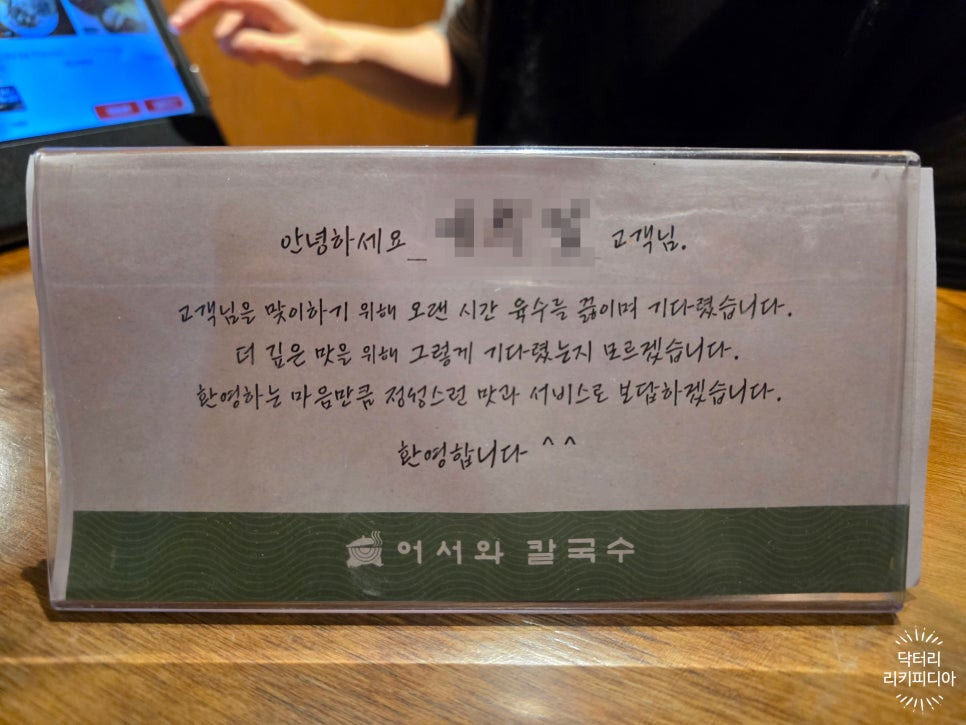 안녕하세요 고객님.
고객님을 맞이하기 위해 오랜 시간 육수를 끓이며 기다렸습니다.
더 깊은 맛을 위해 그렇게 기다렸는지 모르겠습니다.
환영하는 마음만큼 정성스런 맛과 서비스로 보답하겠습니다.
환영합니다 ^^
어서와 칼국수
닥터리
리키피디아